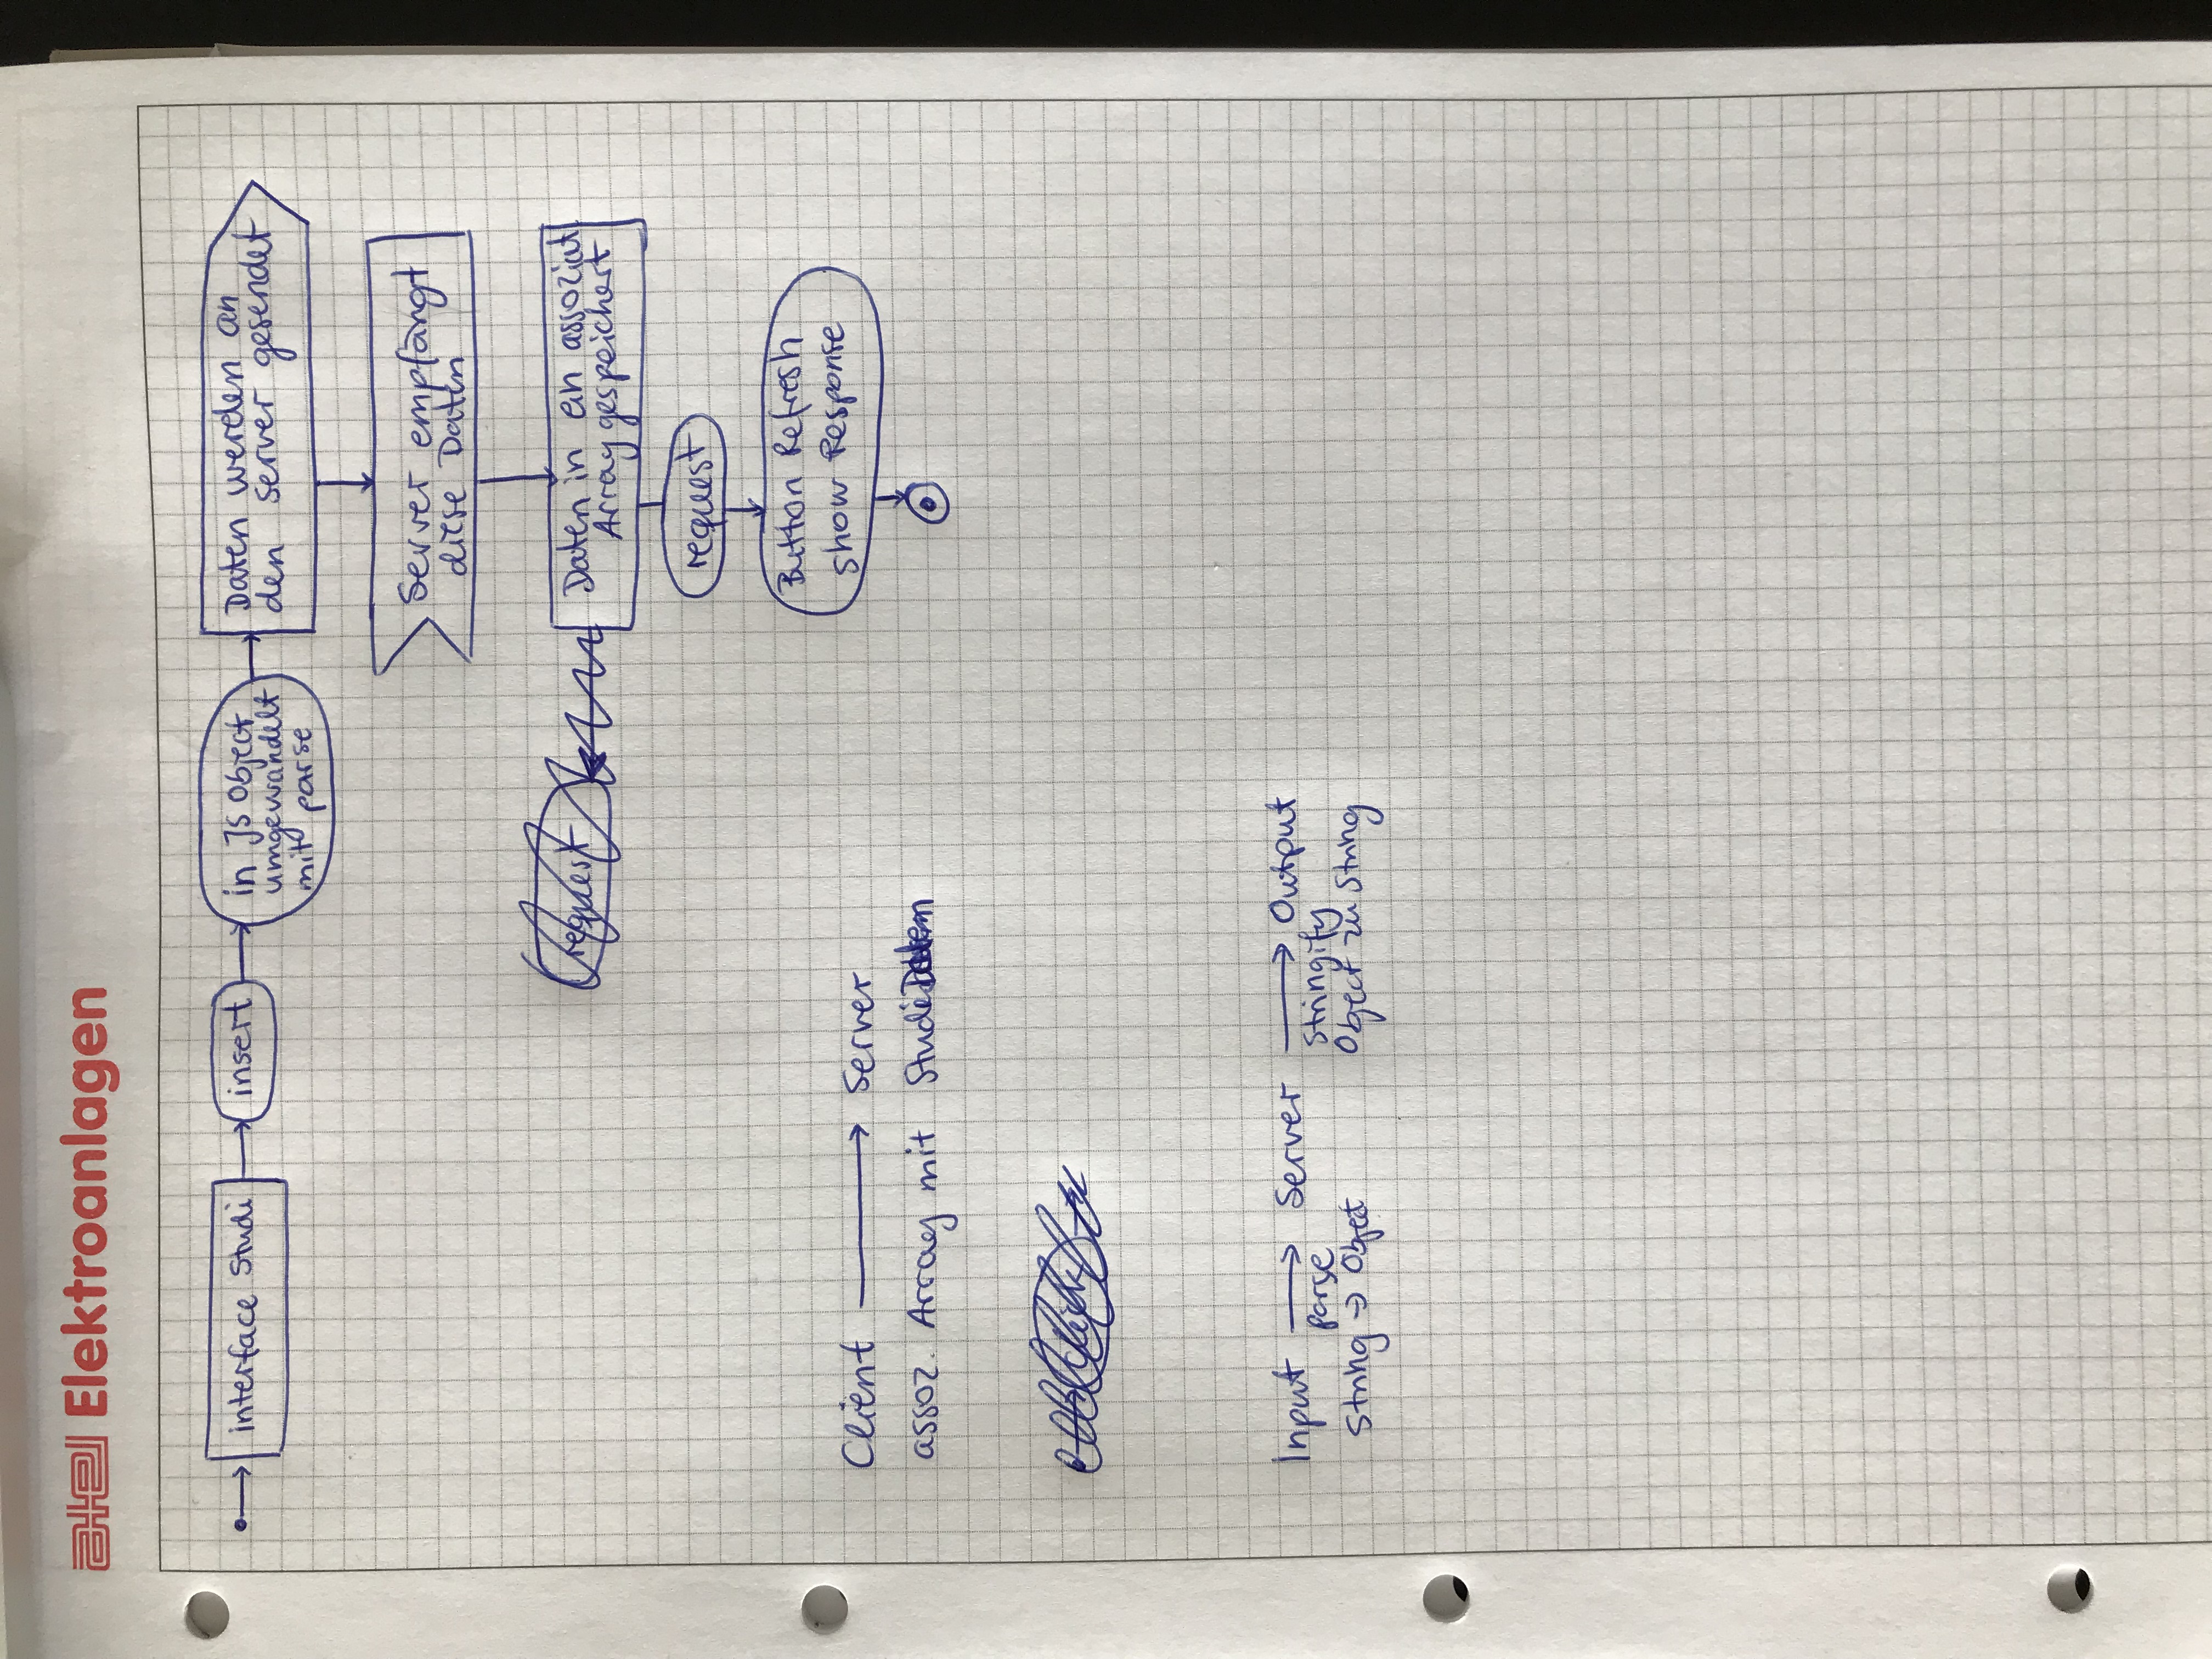 atel Elektroanlagen
interface Studi
insert
in JS Object
umgewandelt
mit parse
Daten werden an
den Server gesendet
Server empfängt
diese Daten
request
Daten in ein assoziat
Array gespeichert
request
Button Refresh
show Response
Client → Server
assoz. Array mit StudiDaten
Input → Server → Output
parse
Stringify
String → Object
Object zu String